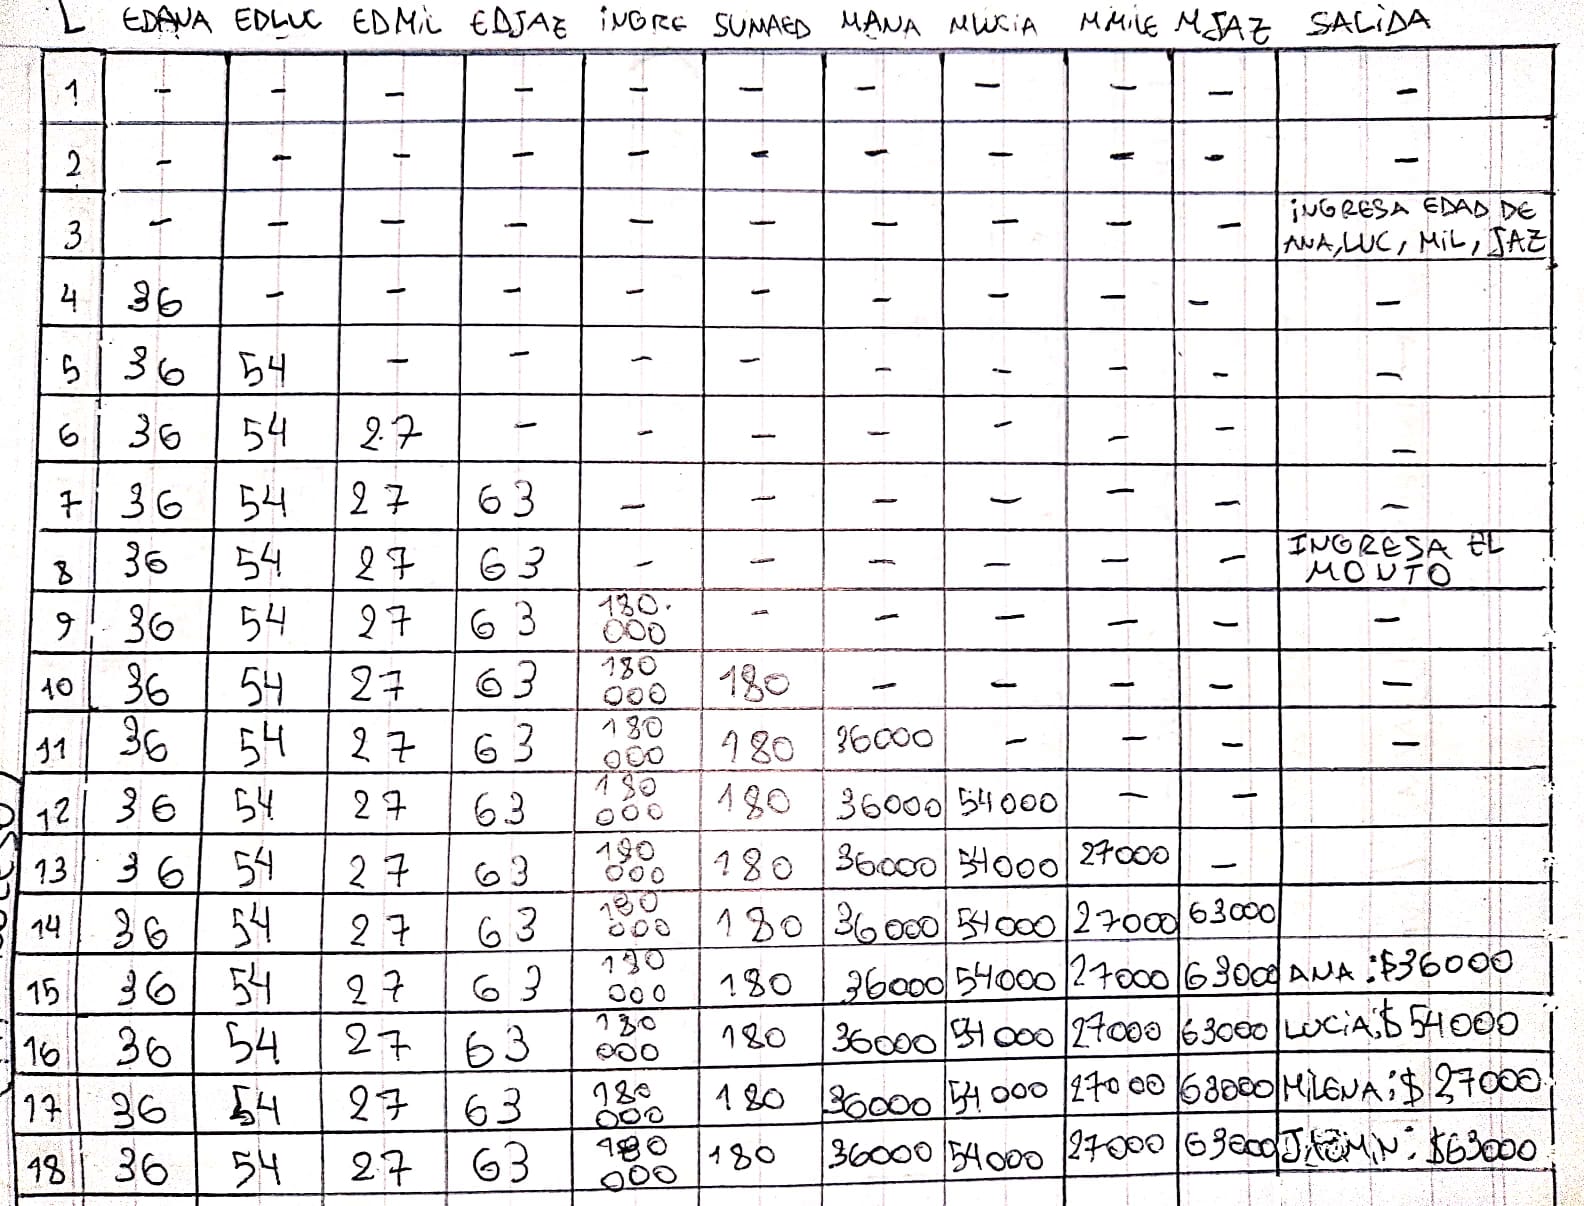 L EDANA EDLUC EDMIL EDJAZ INGRE SUMAED MANA MLUCIA MMILE MJAZ SALIDA
1 - - - - - - - - - - -
2 - - - - - - - - - - -
3 - - - - - - - - - - INGRESA EDAD DE
ANA, LUC, MIL, JAZ
4 36 - - - - - - - - - -
5 36 54 - - - - - - - - -
6 36 54 27 - - - - - - - -
7 36 54 27 63 - - - - - - -
8 36 54 27 63 - - - - - - INGRESA EL
MONTO
9 36 54 27 63 180. - - - - - -
000
10 36 54 27 63 180 180 - - - - -
000
11 36 54 27 63 180 180 36000 - - - -
000
12 36 54 27 63 180 180 36000 54000 - -
000
13 36 54 27 63 180 180 36000 54000 27000 -
000
14 36 54 27 63 180 180 36000 54000 27000 63000
000
15 36 54 27 63 180 180 36000 54000 27000 63000 ANA: $36000
000
16 36 54 27 63 180 180 36000 54000 27000 63000 LUCIA: $54000
000
17 36 54 27 63 180 180 36000 54000 27000 63000 MILENA: $27000
000
18 36 54 27 63 180 180 36000 54000 27000 63000 JAZMIN: $63000
000